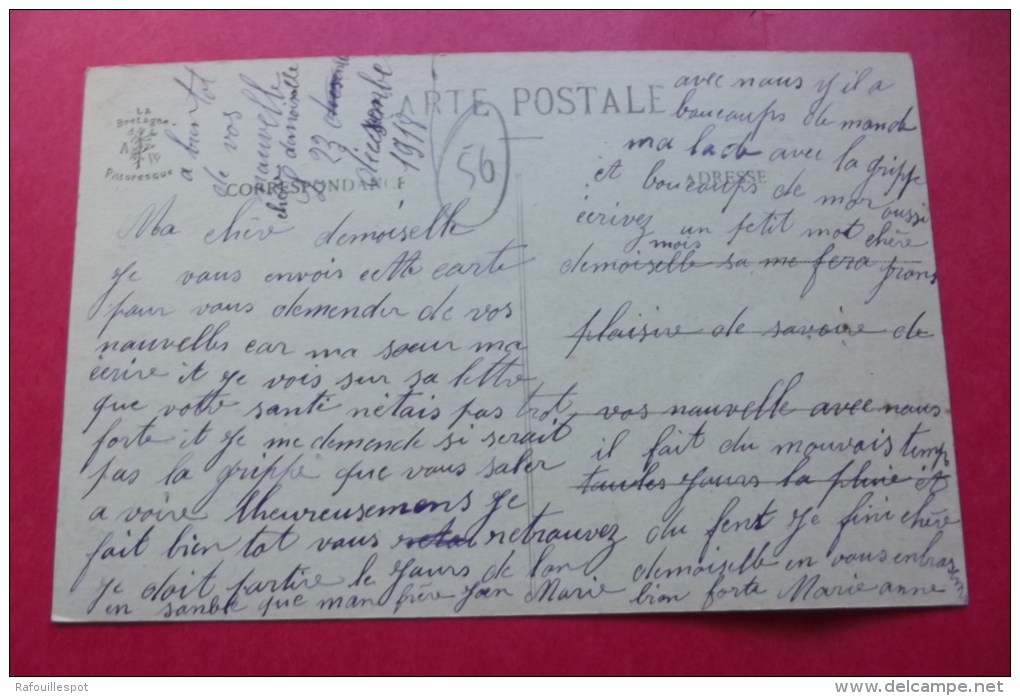 LA
Bretagne
Pittoresque
CARTE POSTALE
CORRESPONDANCE
ADRESSE
56
a bien tot
de vos
nauvelle
chère demoiselle
23
Dicembe
191
Ma chère demoiselle
Je vous envois cette carte
pour vous demender de vos
nauvelles car ma sœur ma
écrire it Je vois sur sa lettre
que votte santé n'étais pas trot
forte it Je me demende si serait
pas la grippe que vous saler
a voire lheureusemens Je
fait bien tot vous retrouvez
Je doit partire le Jours de lan
en samble que man frère Jan Marie
avec nous y il a
boucoups de mande
malade avec la grippe
et boucoups de mor aussi
écrivez un petit mot chère
mois
demoiselle sa me fera grans
plaisire de savoire de
vos nauvelle avec naus
il fait du mauvais temps
toudes Jours la pluie et
du fent Je fini chère
demoiselle en vous enbrassens
bien forte Marie anne
Rafouillespot
www.delcampe.net